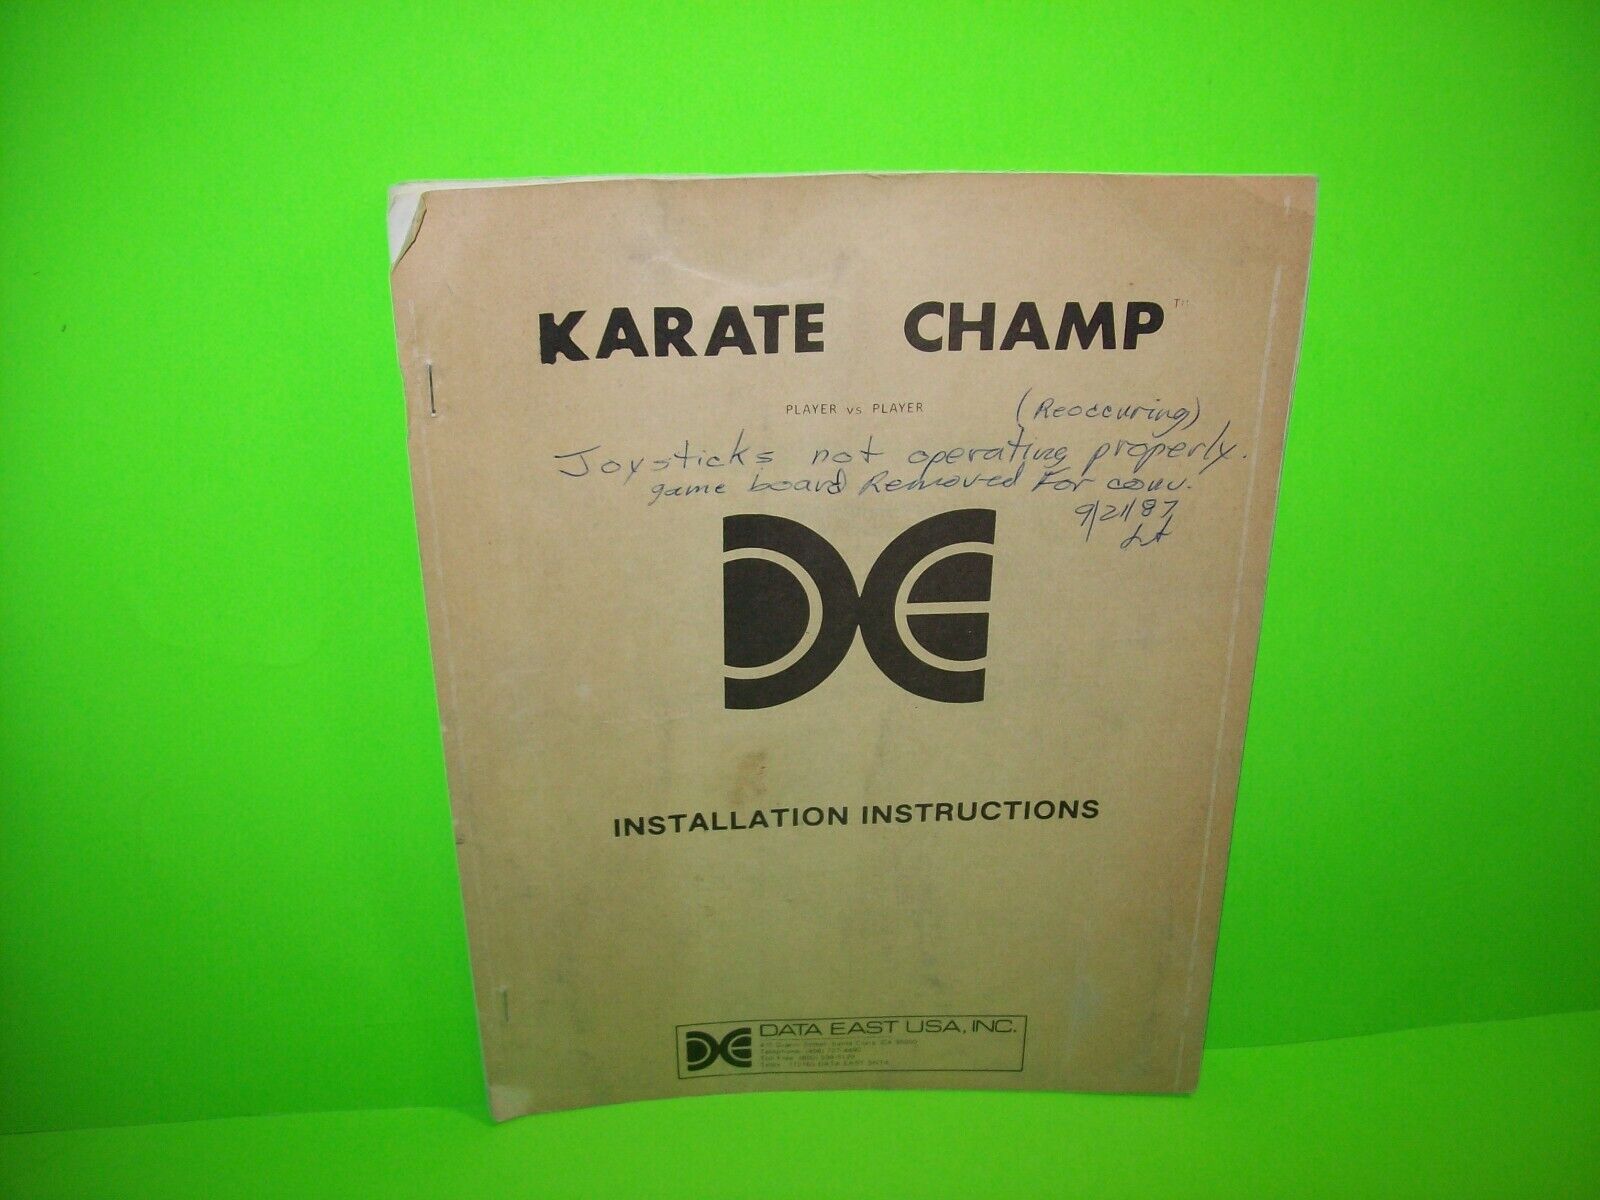 KARATE CHAMP™
PLAYER vs PLAYER
(Reoccuring)
Joysticks not operating properly.
game board Removed For conv.
9/21/87
DE
INSTALLATION INSTRUCTIONS
DE DATA EAST USA, INC.
Telephone: (408) 727-4490